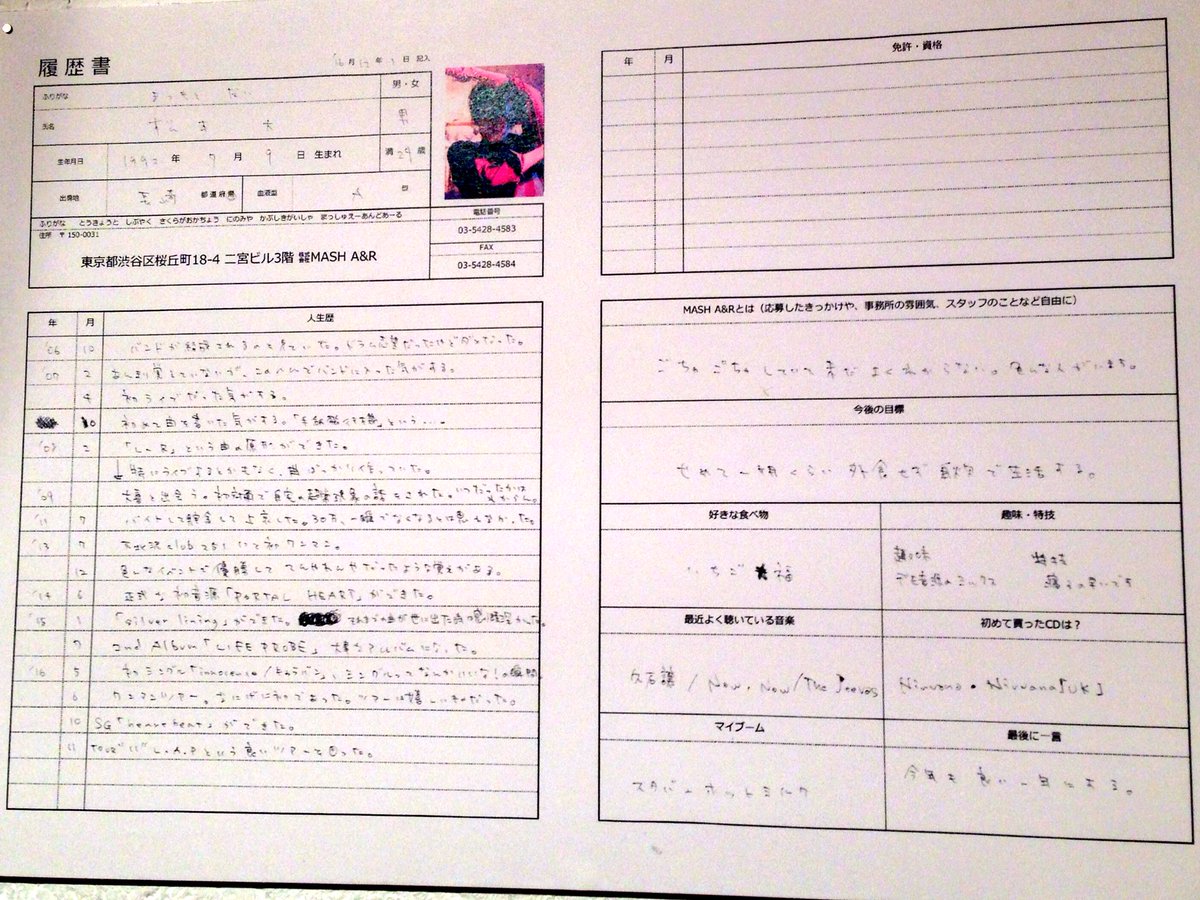 履歴書
'16 月 12 年 1 日 記入
ふりがな
男・女
氏名
男
生年月日 199 年 7 月 9 日 生まれ
満 24 歳
出身地 都道府県 血液型 A 型
ふりがな とうきょうと しぶやく さくらがおかちょう にのみや かぶしきがいしゃ まっしゅえーあんどあーる
住所 〒150-0031
東京都渋谷区桜丘町18-4 二宮ビル3階 株式会社MASH A&R
電話番号
03-5428-4583
FAX
03-5428-4584
年 月 人生歴
'06 10 バンドが結成されるのを見ていた。ドラム志望だったけどダメだった。
'07 2 あんまり覚えていないが、このへんでバンドに入った気がする。
4 初ライブだった気がする。
10 初めて曲を書いた気がする。「手紙」という...
'08 2 「L-R」という曲の原形ができた。
↓ 特にライブするとかもなく、曲ばっかり作っていた。
'09 と出会う。初対面で自宅の超常現象の話をされた。いつだったかは
'11 7 バイトして貯金して上京した。30万、一瞬でなくなるとは思わなかった。
'13 7 下北沢club251にて初ワンマン。
12 色んなイベントで優勝しててんやわんやだったような覚えがある。
'14 6 正式な初音源「PORTAL HEART」ができた。
'15 1 「silver lining」ができた。
7 2nd Album「LIFE PROBE」大事なアルバムになった。
'16 5 初シングル「innocence/キャラバン」シングルってなんかいいな!の瞬間
6 ワンマンツアー。なにげに初であった。ツアーは嬉しいものだった。
10 SG「heartbeat」ができた。
11 TOUR"11" L.A.Pという良いツアーを回った。
年 月 免許・資格
MASH A&Rとは（応募したきっかけや、事務所の雰囲気、スタッフのことなど自由に）
ごちゃごちゃしていてまだよくわからない。色んな人がいます。
今後の目標
せめて一週くらい外食せず自炊で生活する。
好きな食べ物
いちご大福
趣味・特技
趣味 特技
ミックス
最近よく聴いている音楽
久石譲/Now, Now/The Jeevas
初めて買ったCDは？
Nirvana・Nirvana[UK]
マイブーム
スタバのホットミルク
最後に一言
今年も良い一年にする。